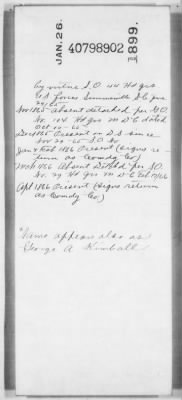 JAN. 26.
40798902
1899.
by virtue S.O. 44 Hd qrs
U.S. forces Summerville S.C. June
29/65
Nov 1865 absent detached per G.O.
No. 104 Hd qrs M D C dated
Oct 10 - 65
Dec 1865 Present on D.S. since
Nov 20 - 65 S.O. No
Jan & Feb 1866 Present (Signs re-
turn as Comdg Co)
Mch 1866 Absent Detchd per S.O.
No. 29 Hd qrs M D C Feb 17/66
Apl 1866 Present (Signs return
as Comdg Co)
Name appears also as
George A. Kimball